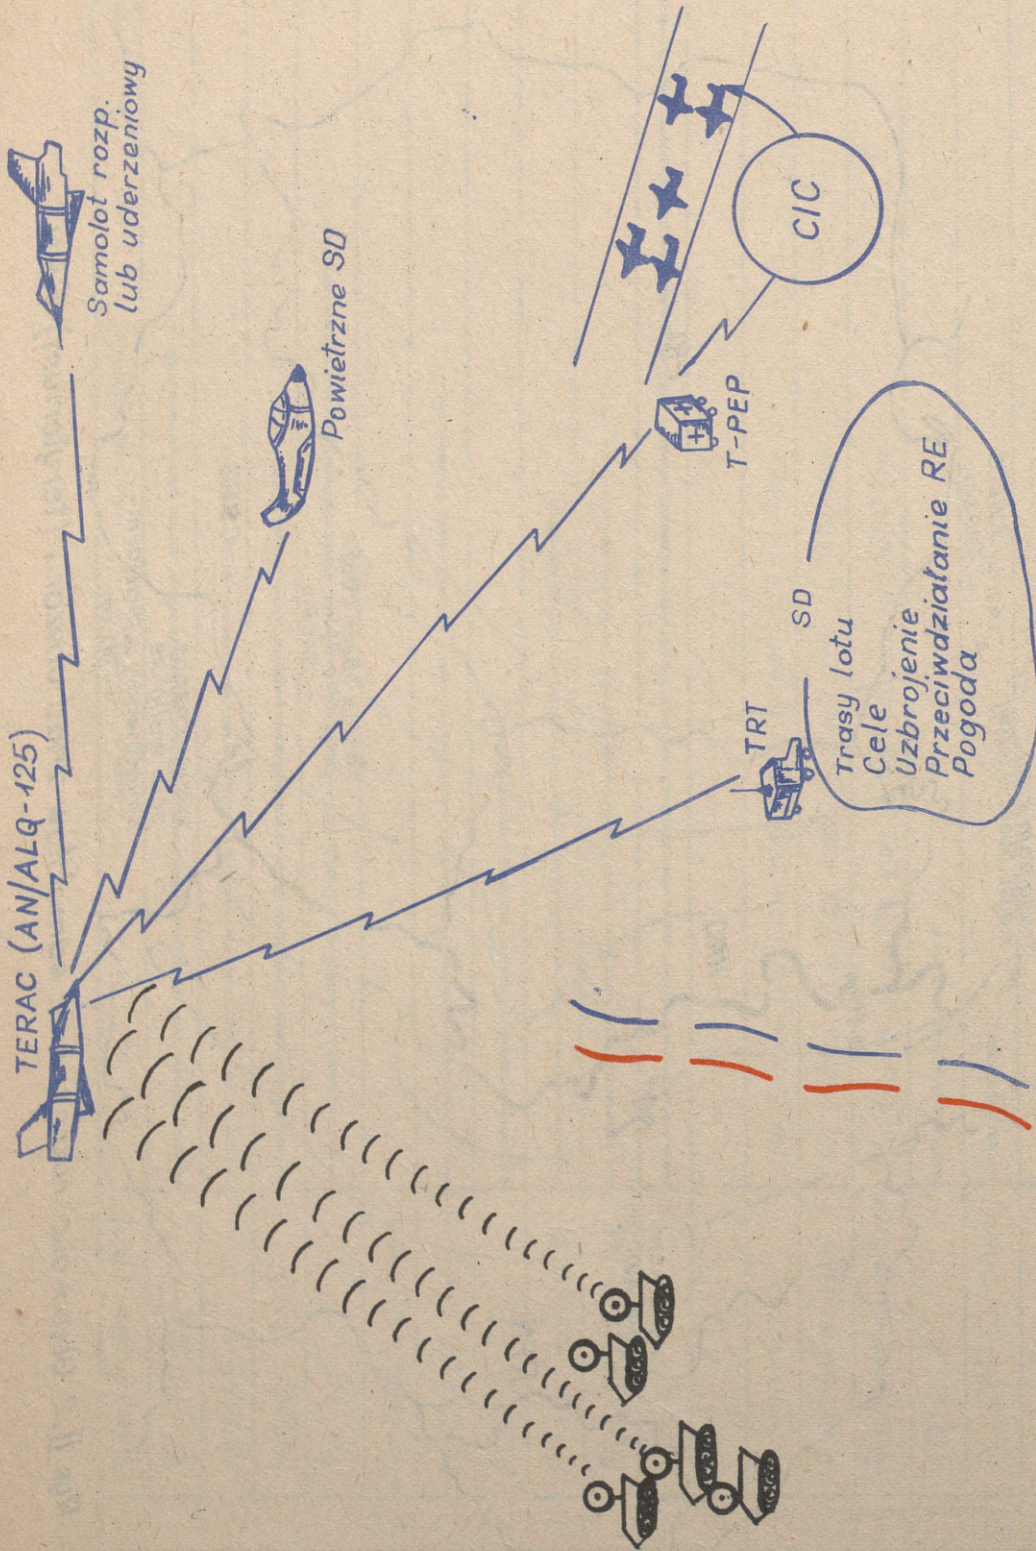 TERAC (AN/ALQ-125)
Samolot rozp.
lub uderzeniowy
Powietrzne SD
T-PEP
CIC
TRT
SD
Trasy lotu
Cele
Uzbrojenie
Przeciwdziałanie RE
Pogoda